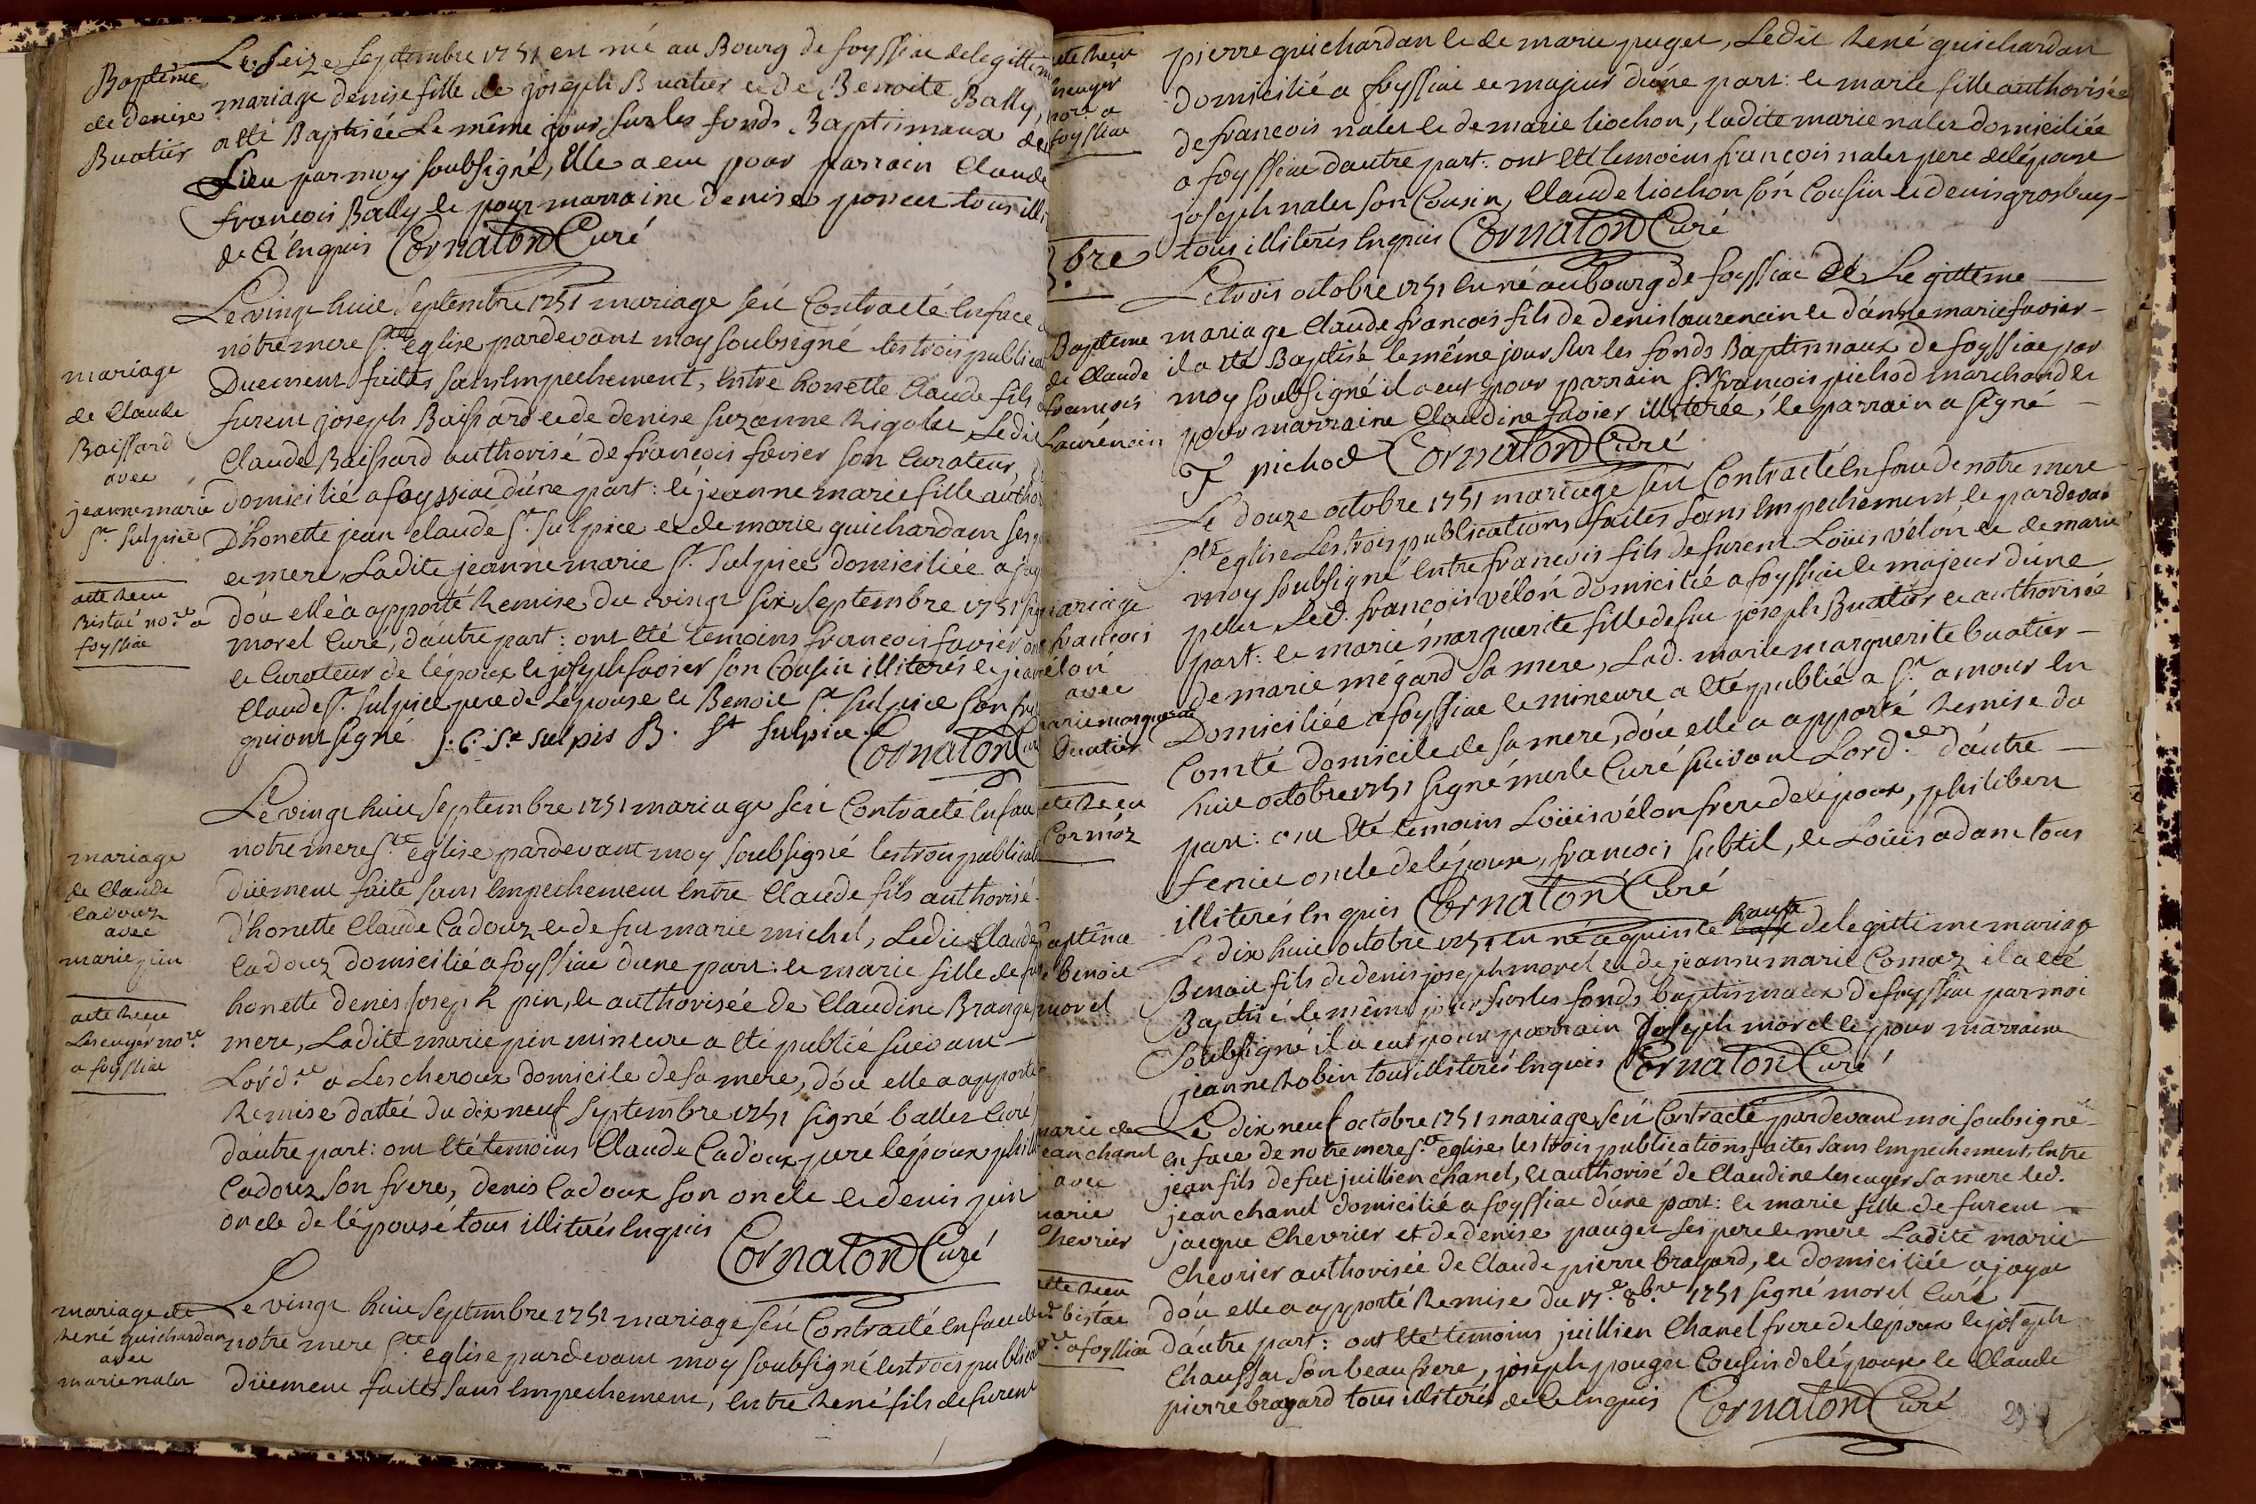 Baptême
de denise
Buatier
Le seize septembre 1751 est né au Bourg de foyssiac de legittime
mariage denise fille de joseph Buatier et de Benoite Bally,
a été Baptisée Le même jour sur les fonds Baptismaux du
Lieu par moy soubsigné, Elle a eu pour parrain Claude
françois Bally et pour marraine denise poncet tous ill
de ce Enquis Cornaton Curé
mariage
de Claude
Baissard
avec
jeanne marie
St. Sulpice
acte Receu
Bistac no.re a
foyssiac
Le vingt huit septembre 1751 mariage sest Contracté En face
notre mere S.te eglise pardevant moy soubsigné les trois publica
Duement faites sans Empechement, Entre honette Claude fils
furent joseph Baissard et de denise suzanne Rigolet, Ledit
Claude Baissard authorisé de francois favier son Curateur
domicilié a foyssiac d'une part: et jeanne marie fille autho
D'honette jean claude St. Sulpice et de marie guichardan ses
et mere, Ladite jeanne marie St. Sulpice domiciliée a jay
d'ou elle a apporté Remise du vingt six septembre 1751
morel Curé, d'autre part: ont été temoins francois favier on
et Curateur de l'époux et joseph favier son Cousin illiterés et jean
Claude St. Sulpice pere de Lepouse et Benoit St. Sulpice son fre
qui ont signé J. C. St sulpis B. St Sulpice Cornaton Cu
mariage
de Claude
Cadouz
avec
marie pin
acte Receu
Lescuyer no.re
a foyssiac
Le vingt huit septembre 1751 mariage sest Contracté En face
notre mere S.te eglise pardevant moy soubsigné les trois publica
düement faite sans Empechement Entre Claude fils authorisé
d'honette Claude Cadouz et de fut marie michel, Ledit Claude
Cadouz domicilié a foyssiac d'une part: et marie fille de fu
honette denis joseph pin, et authorisée de Claudine Brange
mere, Ladite marie pin mineure a été publié suivant
Lord.ce a Lescheroux domicile de sa mere, d'ou elle a apporté
Remise dattée du dix neuf Septembre 1751 signé ballet Curé
d'autre part: ont été temoins Claude Cadoux pere lépoux phili
Cadouz son frere, denis Cadoux son oncle et denis pin
oncle de l'épouse tous illiterés Enquis
Cornaton Curé
mariage de
René guichardan
avec
marie nalet
Le vingt huit Septembre 1751 mariage sest Contracté En face de
notre mere S.te eglise pardevant moy soubsigné les trois publica
düement faites sans Empechement, Entre René fils de furent
acte Receu
escuyer
no.re a
foyssiac
pierre guichardan et de marie puget, Ledit René guichardan
domicilié a foyssiac et majeur d'une part: et marie fille authorisée
de francois nalet et de marie liochon, ladite marie nalet domiciliée
a foyssiac dautre part. ont été temoins francois nalet pere de lépouse
joseph nalet son Cousin, Claude liochon son Cousin et denis grosbuy
tous illiterés Enquis Cornaton Curé
bre
Bapteme
de Claude
francois
Laurencin
Le trois octobre 1751 Est né au bourg de foyssiac de Legittime
mariage Claude francois fils de denis laurencin et d'anne marie favier
il a été Baptisé le même jour sur les fonds Baptismaux de foyssiac par
moy soubsigné il a eut pour parrain S.r francois pichod marchand et
pour marraine Claudine favier illiterée, le parrain a signé
F pichod Cornaton Curé
mariage
francois
élon
avec
marie marguerite
Buatier
acte Receu
Cormoz
Le douze octobre 1751 mariage sest Contracté En face de notre mere
S.te eglise Les trois publications faites sans Empechement, et pardevant
moy soubsigné Entre francois fils de furent Loüis vélon et de marie
, Led. francois vélon domicilié a foyssiac et majeur d'une
part: et marie marguerite fille de fut joseph Buatier et authorisée
de marie mégard sa mere, Lad. marie marguerite buatier
Domiciliée a foyssiac et mineure a été publié a St. amour En
Comté domicile de sa mere, d'ou elle a apporté Remise du
huit octobre 1751 signé merle Curé suivant Lord.ce d'autre
part: ont été temoins Loüis vélon frere de l'époux, philibert
feriet oncle de l'époux, francois subtil, et Loüis adam tous
illiterés Enquis Cornaton Curé
Baptême
de Benoit
morel
Le dix huit octobre 1751 Est né a haute de legittime mariage
Benoit fils de denis joseph morel et de jeanne marie Comaz il a été
Baptisé le même jour sur les fonds baptismaux de foyssiac par moi
Soubsigné il a eut pour parrain Joseph morel et pour marraine
jeanne Robin tous illiterés Enquis Cornaton Curé
marie de
jean chanel
avec
marie
Chevrier
acte Receu
bistac
re a foyssiac
Le dix neuf octobre 1751 mariage sest Contracté pardevant moi soubsigné
En face de notre mere S.te eglise, les trois publications faites sans Empechement, Entre
jean fils de fut juillien chanel, et authorisé de Claudine lescuyer sa mere led.
jean chanel domicilié a foyssiac d'une part: et marie fille de furent
jacque Chevrier et de denise pauget ses pere et mere Ladite marie
Chevrier authorisée de Claude pierre brayard, et domiciliée a jayat
d'ou elle a apporté Remise du 17.e 8bre 1751 signé morel Curé
d'autre part: ont été temoins juillien Chanel frere de lépoux et joseph
Chaussat son beau frere, joseph pouget Cousin de lépouse et Claude
pierre brayard tous illiterés de ce Enquis Cornaton Curé
29